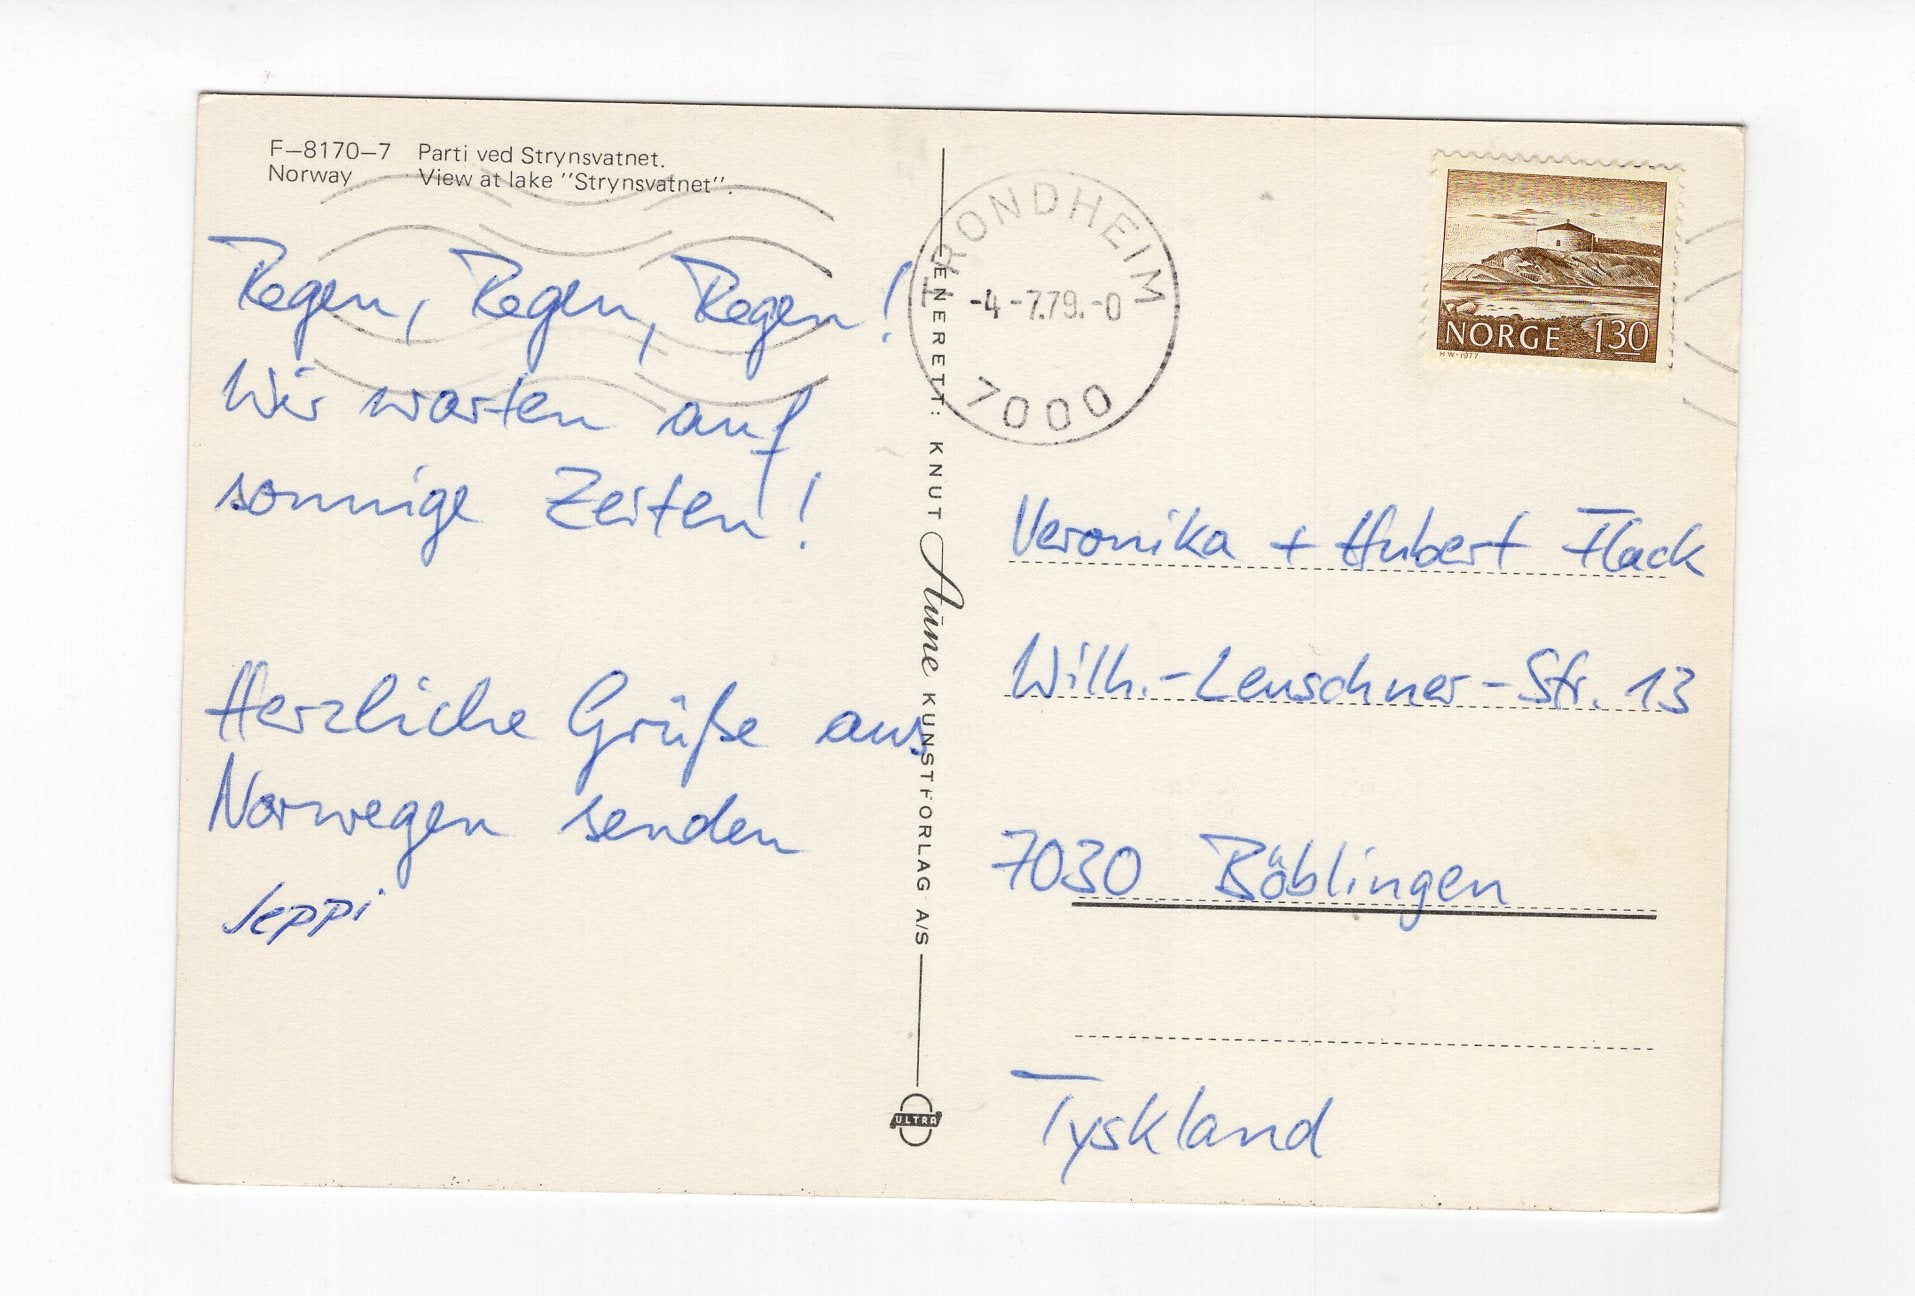 F–8170–7 Parti ved Strynsvatnet.
Norway View at lake "Strynsvatnet".
Regen, Regen, Regen!
Wir warten auf
sonnige Zeiten!
Herzliche Grüße aus
Norwegen senden
Seppi
ENERETT: KNUT Aune KUNSTFORLAG A/S
ULTRA
TRONDHEIM
-4-7.79.-0
7000
NORGE 130
HW-1977
Veronika + Hubert Flack
Wilh.-Leuschner-Str. 13
7030 Böblingen
Tyskland